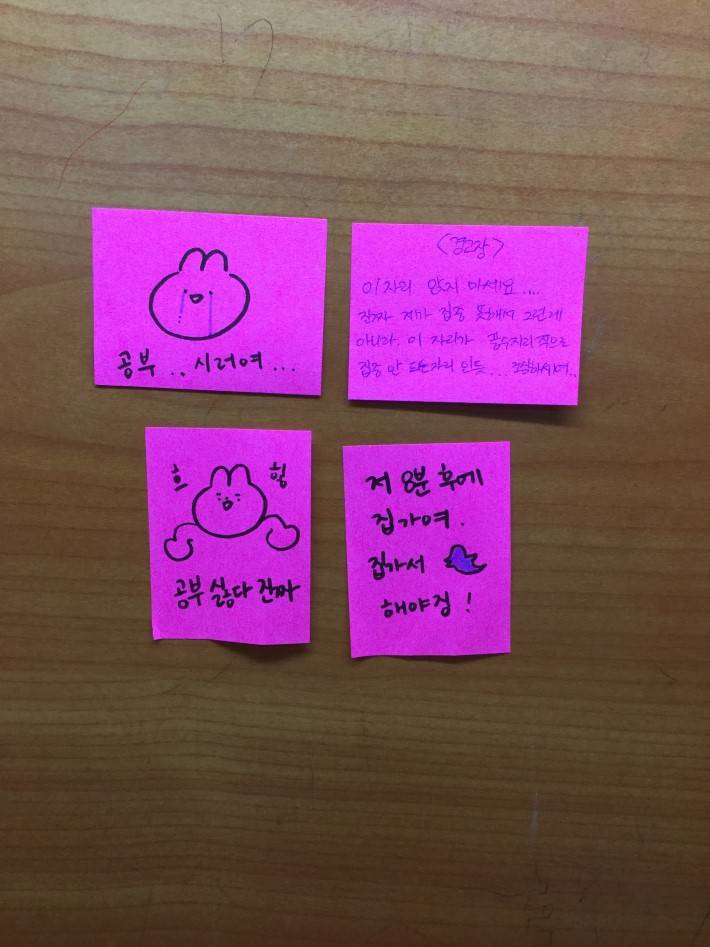 공부.. 시러여...
<경고장>
이 자리 앉지 마세요....
진짜 제가 집중 못해서 그런게
아니라. 이 자리가 풍수지리적으로
집중 안 되는자리 인듯... 조심하시여..
흐 헝
공부 싫다 진짜
저 8분 후에
집가여.
집가서
해야징!